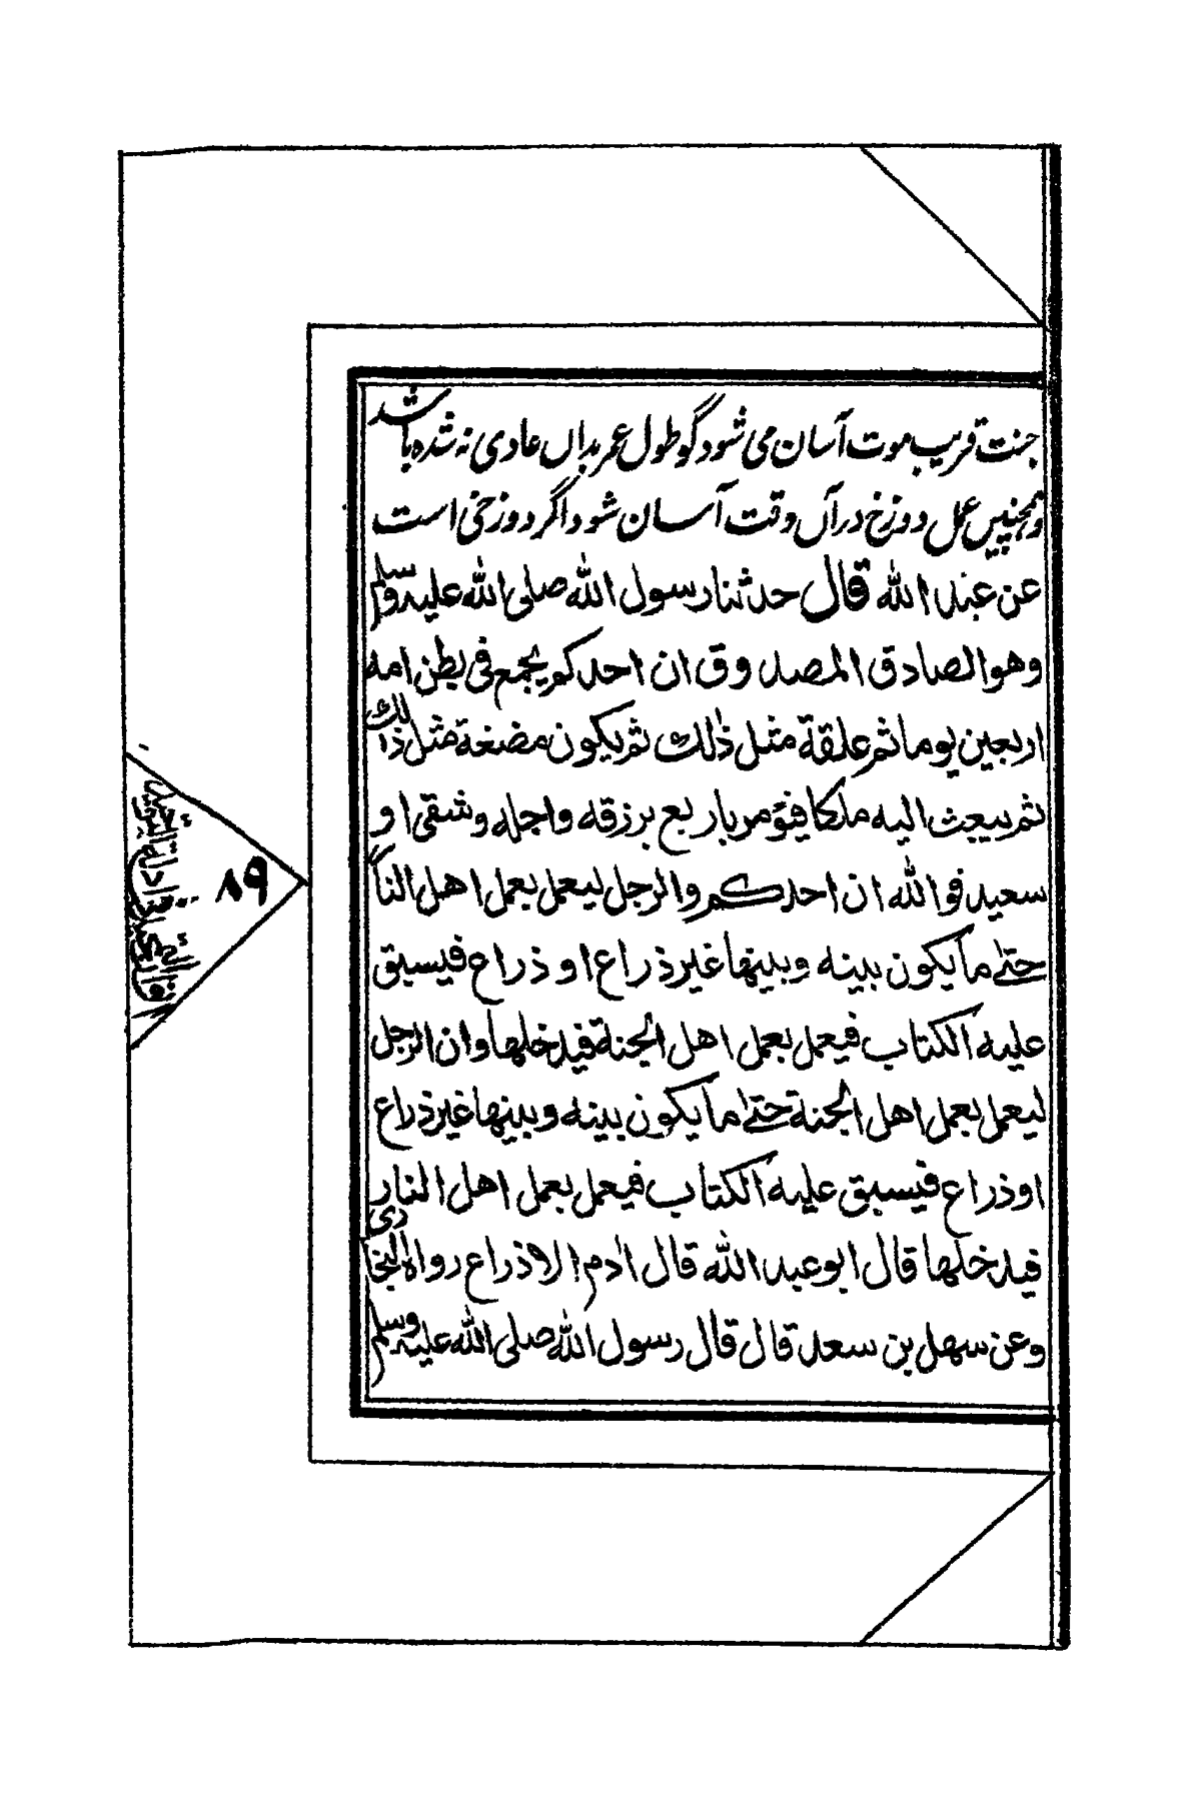 جنت قریب موت آسان می شود گو طول عمر بداں عادی نہ شدہ باشد
وہمچنیں عمل دوزخ در آں وقت آسان شود اگر دوزخی است
عن عبد الله قال حدثنا رسول الله صلى الله عليه وسلم
وهو الصادق المصدوق ان احدكم يجمع في بطن امه
اربعين يوما ثم علقة مثل ذلك ثم يكون مضغة مثل ذلك
ثم يبعث اليه ملكا فيؤمر باربع برزقه واجله وشقي او
سعيد فوالله ان احدكم والرجل ليعمل بعمل اهل النار
حتى ما يكون بينه وبينها غير ذراع او ذراع فيسبق
عليه الكتاب فيعمل بعمل اهل الجنة فيدخلها وان الرجل
ليعمل بعمل اهل الجنة حتى ما يكون بينه وبينها غير ذراع
او ذراع فيسبق عليه الكتاب فيعمل بعمل اهل النار
فيدخلها قال ابو عبد الله قال ادم الا ذراع رواه البخاري
وعن سهل بن سعد قال قال رسول الله صلى الله عليه وسلم
۸۹